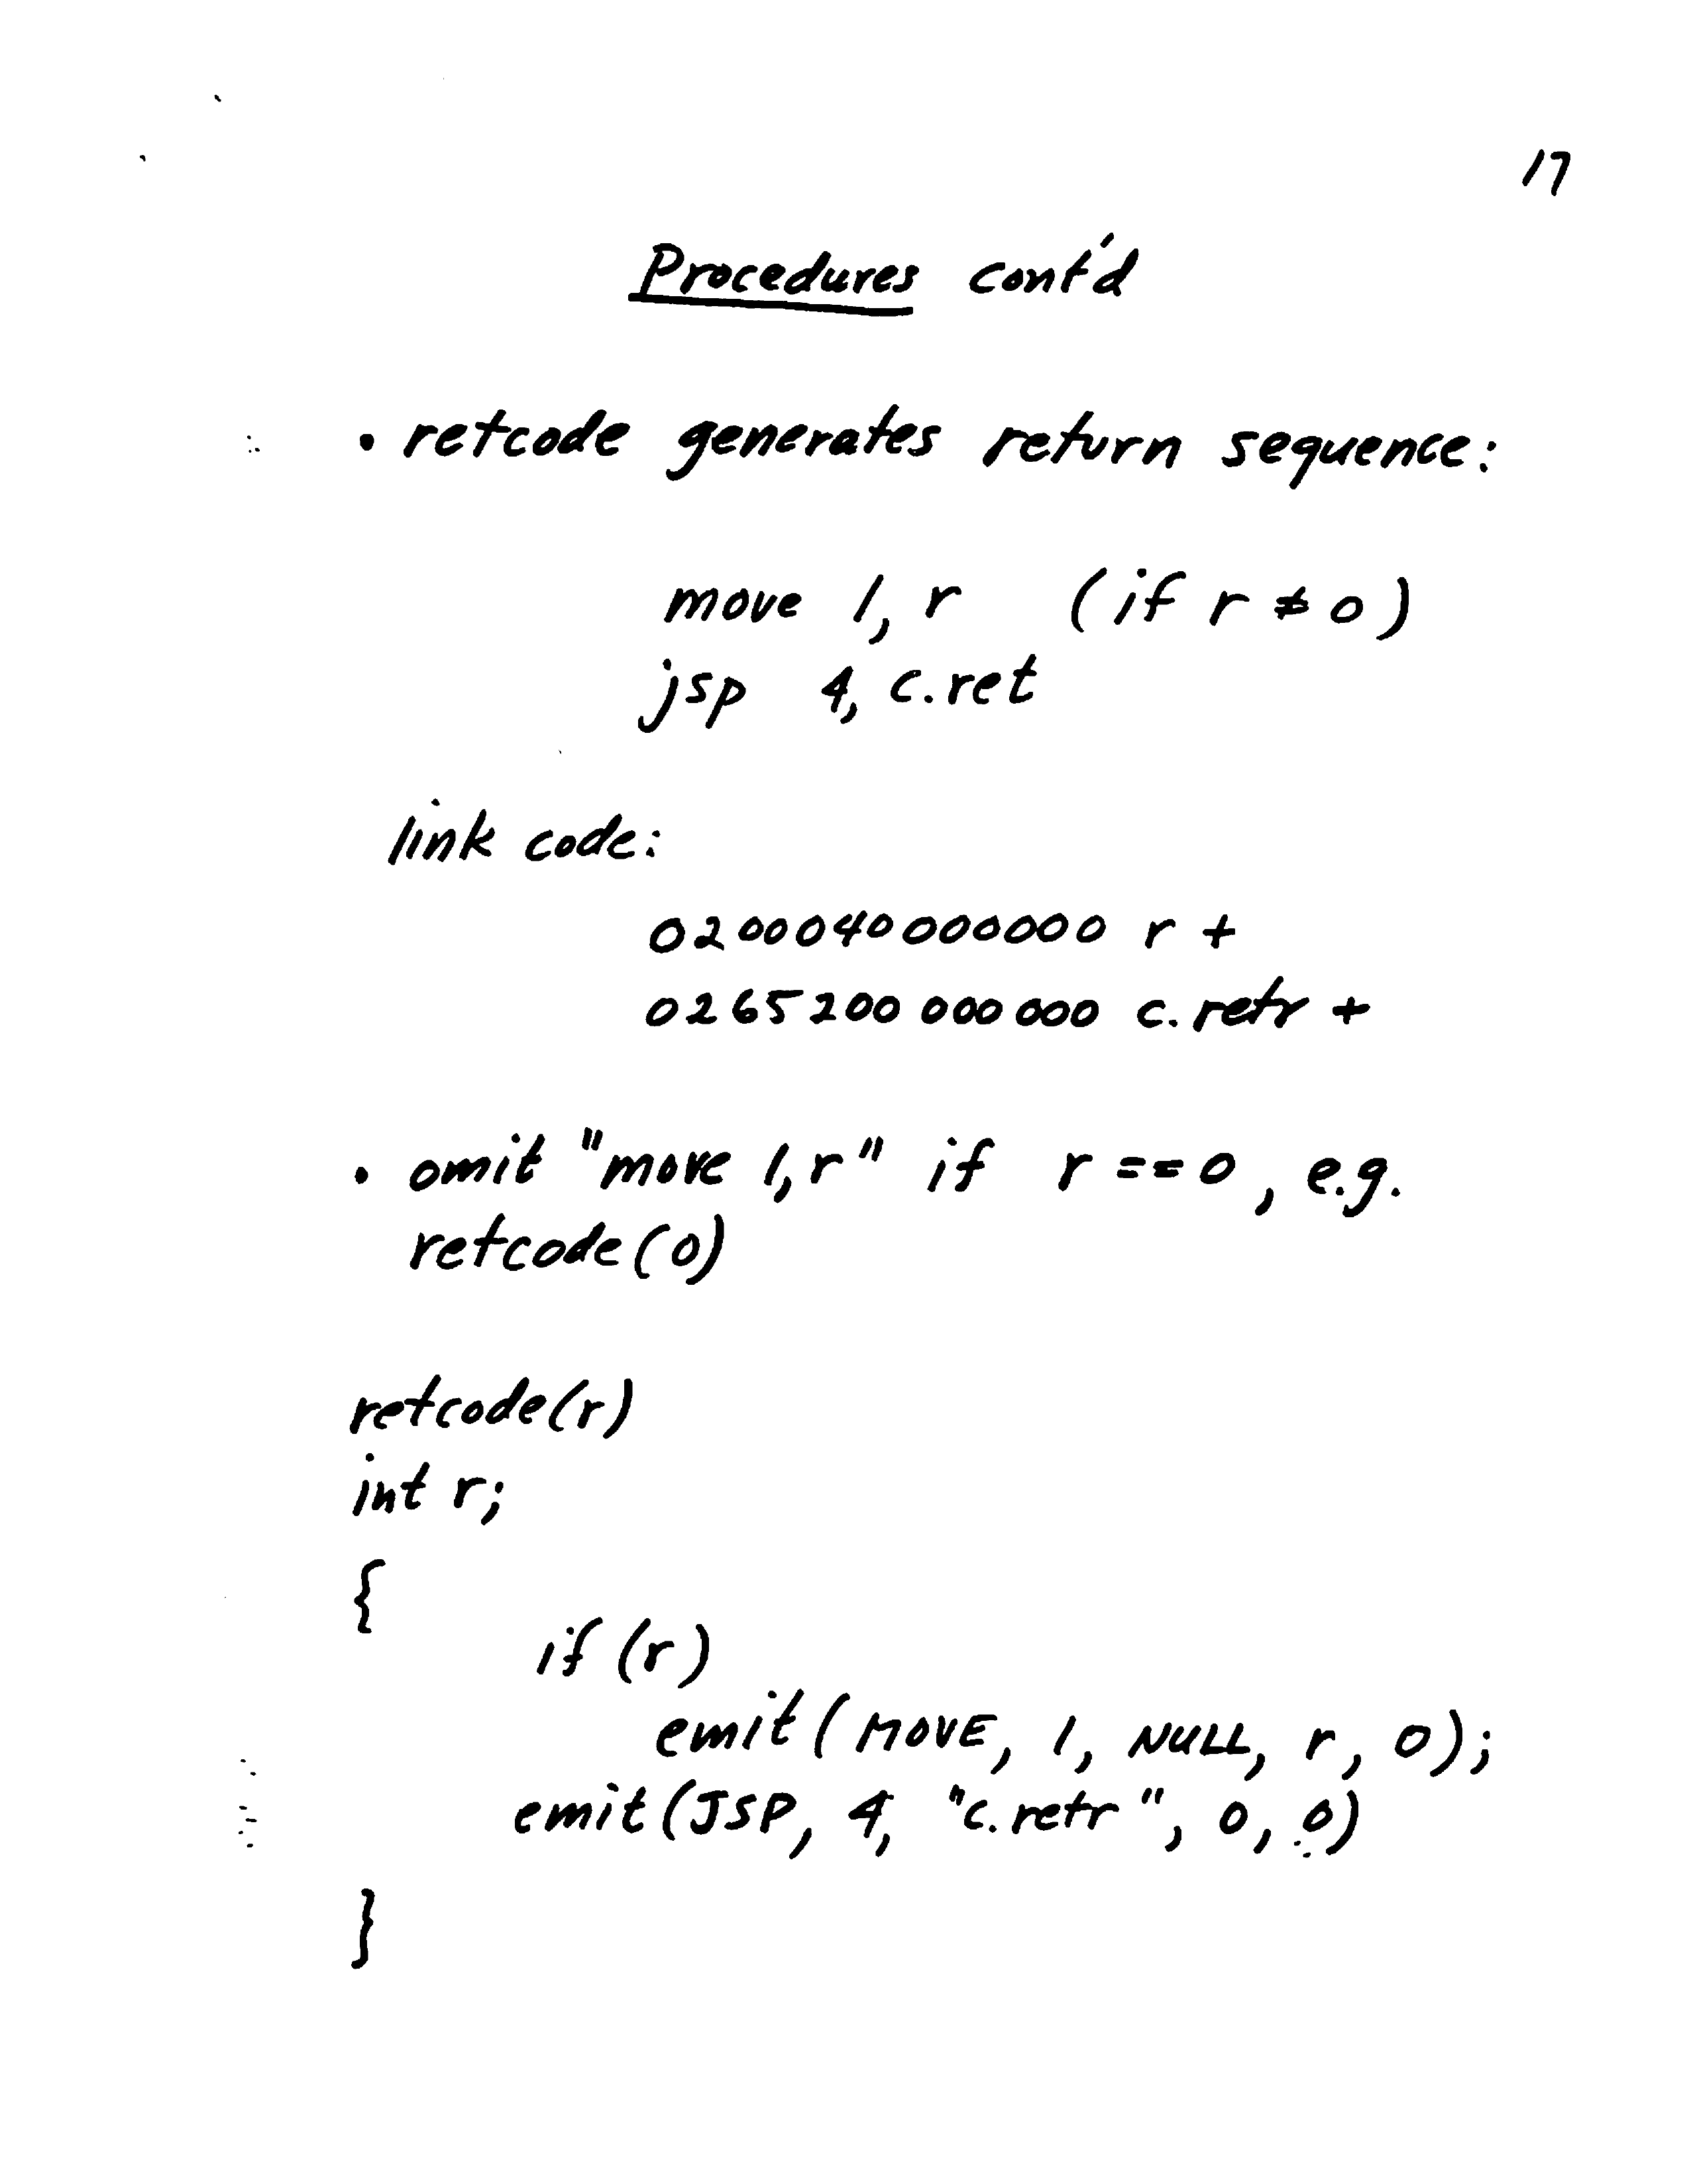 17
Procedures cont'd
• retcode generates return sequence:
move 1, r (if r ≠ 0)
jsp 4, c.ret
link code:
0200040000000 r +
0265200 000 000 c.retr +
• omit "move 1, r" if r == 0, e.g.
retcode(0)
retcode(r)
int r;
{
if (r)
emit(MOVE, 1, NULL, r, 0);
emit(JSP, 4, "c.retr", 0, 0)
}